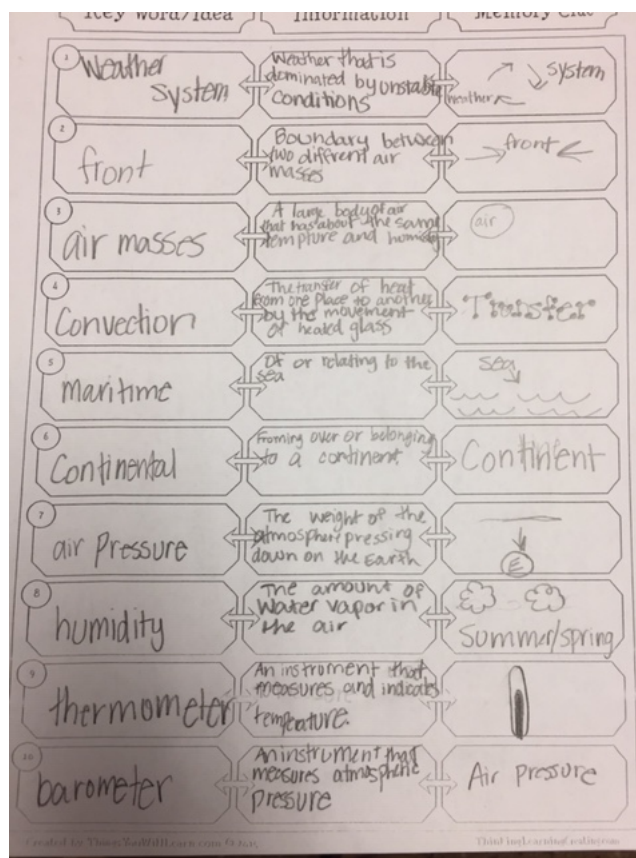 Key Word/Idea Information Memory Clue
1
Weather
System
Weather that is
dominated by unstable
conditions
system
weather
2
front
Boundary between
two diffrent air
masses
front
3
air masses
A large body of air
that has about the same
tempture and humidity
air
4
Convection
The transfer of heat
from one place to another
by the movement
of heated glass
Transfer
5
maritime
Of or relating to the
sea
sea
6
Continental
Froming over or belonging
to a continent
Continent
7
air Pressure
The weight of the
atmosphere pressing
down on the Earth
E
8
humidity
The amount of
Water vapor in
the air
Summer/spring
9
thermometer
An instroment that
measures and indicates
temperature.
10
barometer
An instrument that
measures atmospheric
pressure
Air pressure
Created by ThingsYouWillLearn.com ©
ThinkingLearningCreating.com